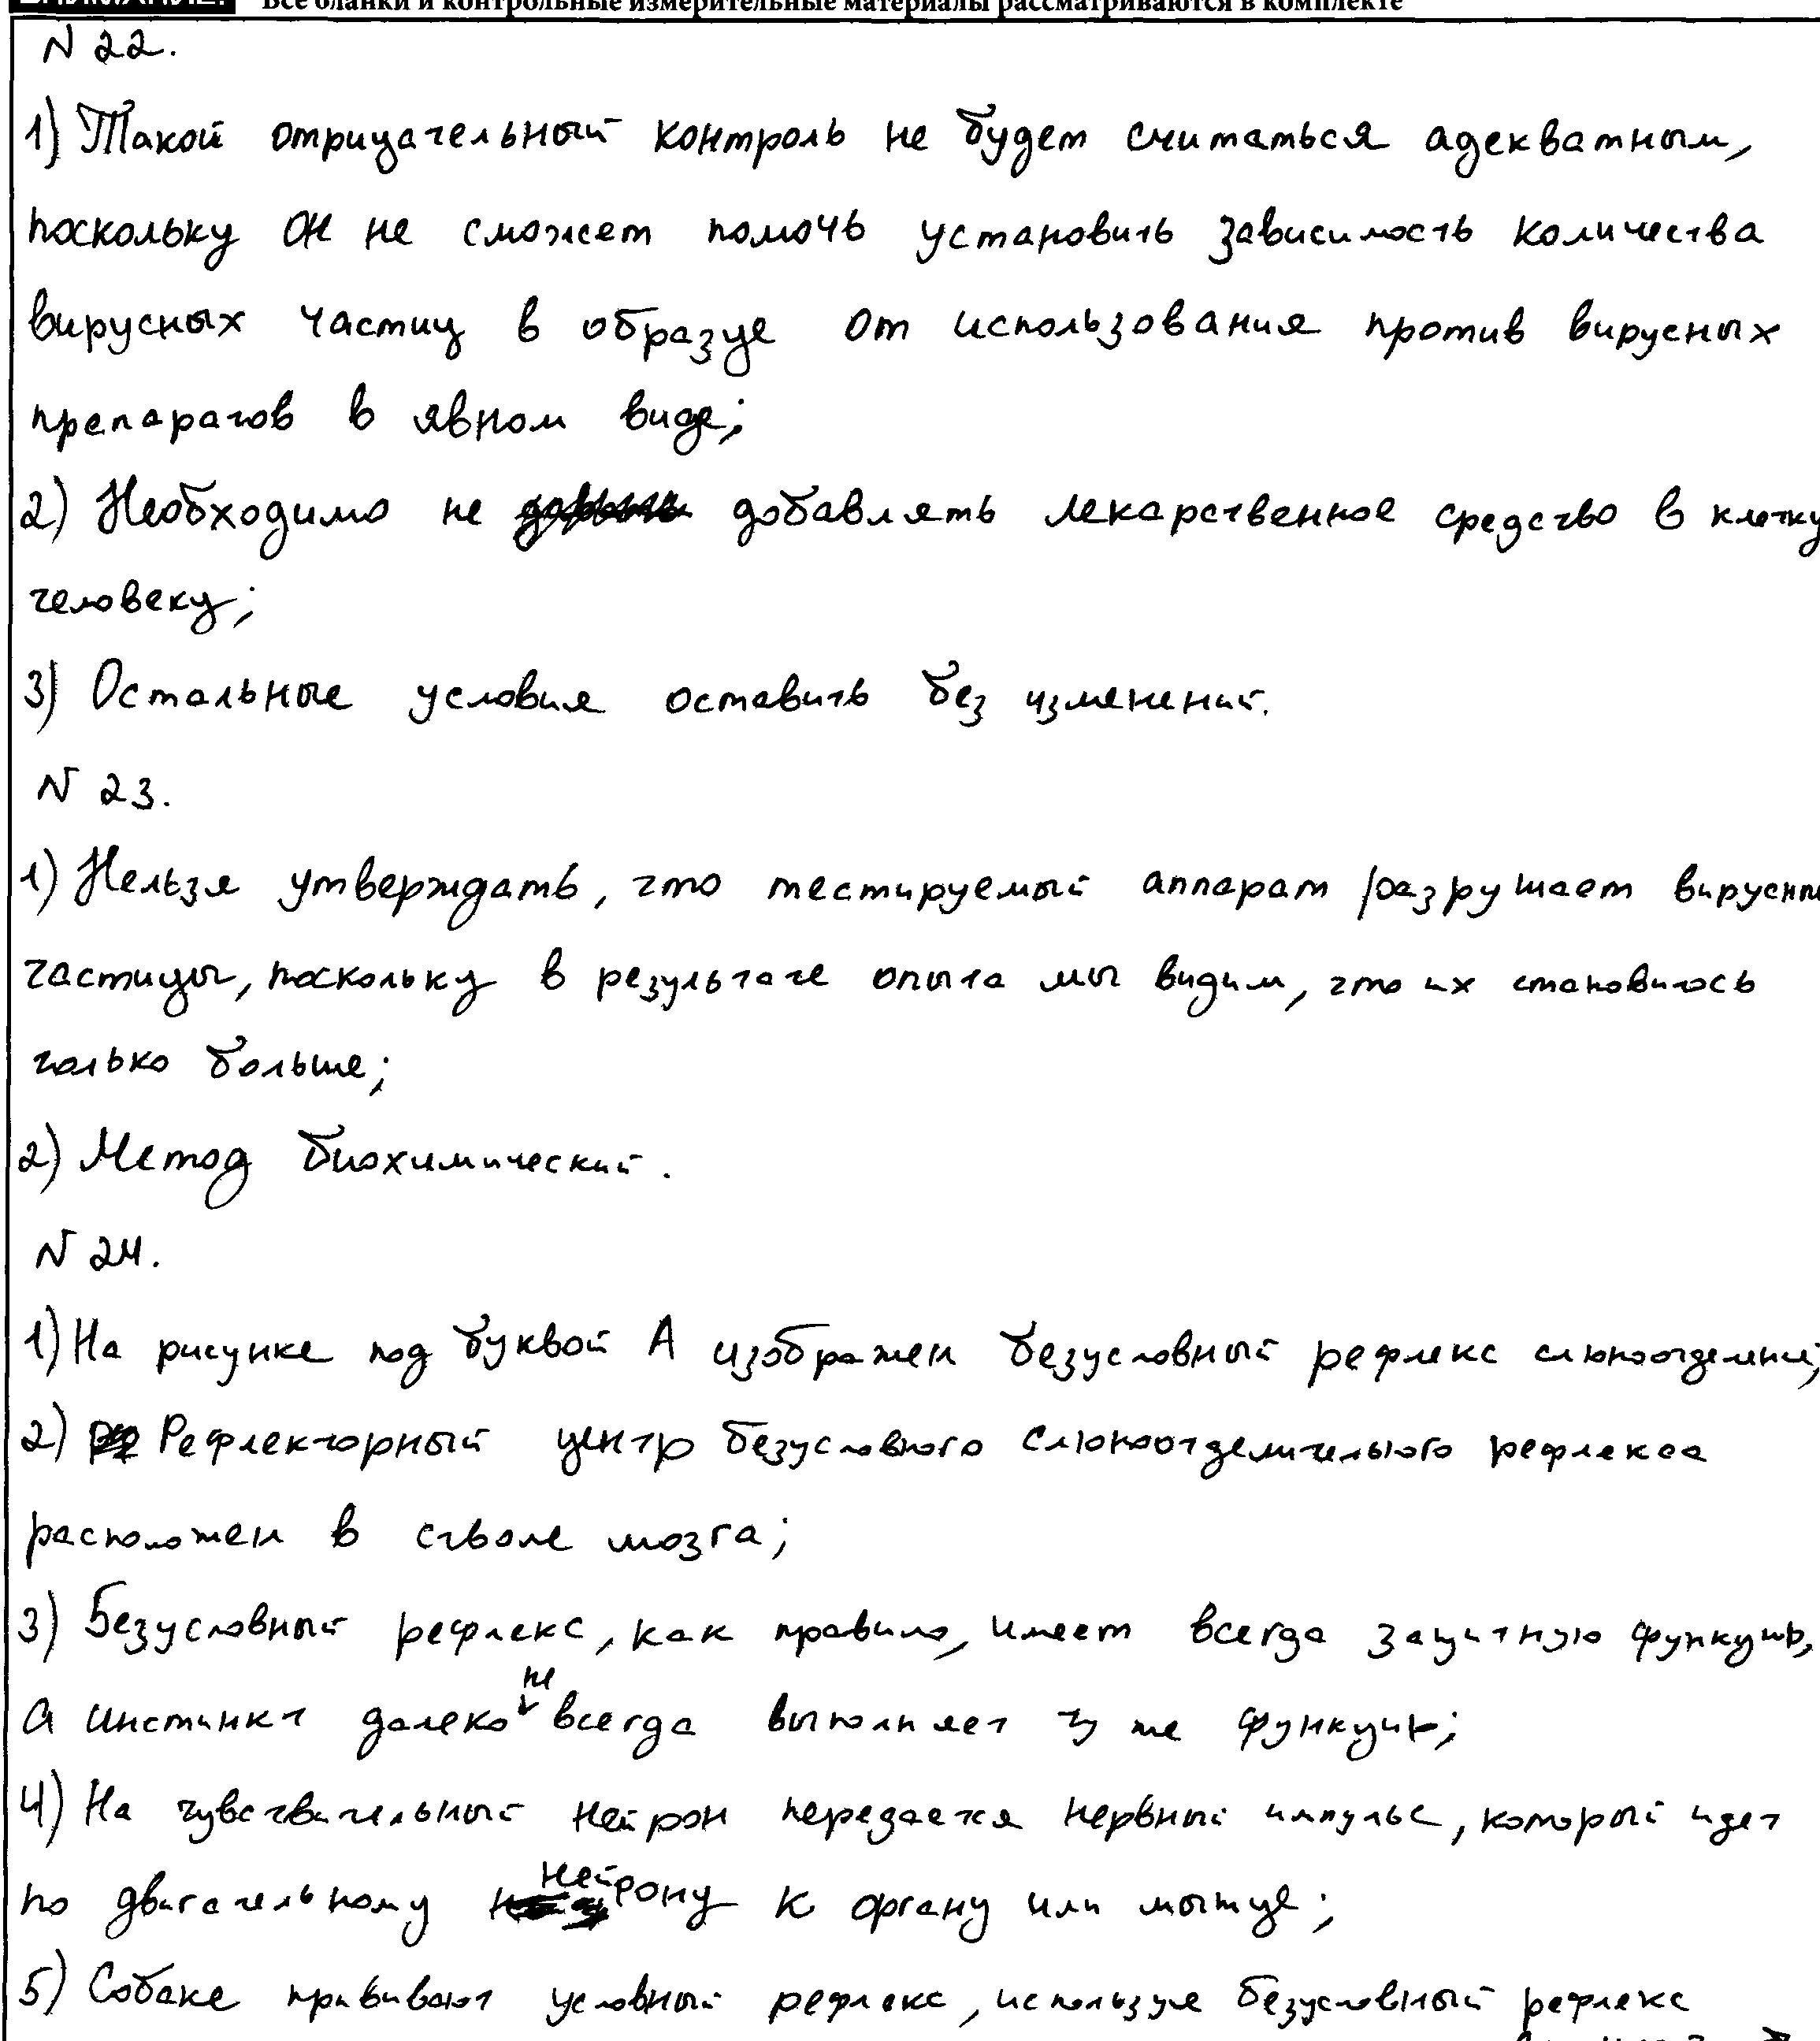 Все бланки и контрольные измерительные материалы рассматриваются в комплекте
N 22.
1) Такой отрицательный контроль не будет считаться адекватным,
поскольку он не сможет помочь установить зависимость количества
вирусных частиц в образце от использования против вирусных
препаратов в явном виде;
2) Необходимо не добавлять лекарственное средство в клетку
человеку;
3) Остальные условия оставить без изменений.
N 23.
1) Нельзя утверждать, что тестируемый аппарат разрушает вирусны
частицы, поскольку в результате опыта мы видим, что их становилось
только больше;
2) Метод биохимический.
N 24.
1) На рисунке под буквой А изображен безусловный рефлекс слюноотделения;
2) Рефлекторный центр безусловного слюноотделительного рефлекса
расположен в стволе мозга;
3) Безусловный рефлекс, как правило, имеет всегда защитную функцию,
а инстинкт далеко не всегда выполняет ту же функцию;
4) На чувствительный нейрон передается нервный импульс, который идет
по двигательному нейрону к органу или мышце;
5) Собаке прививают условный рефлекс, используя безусловный рефлекс